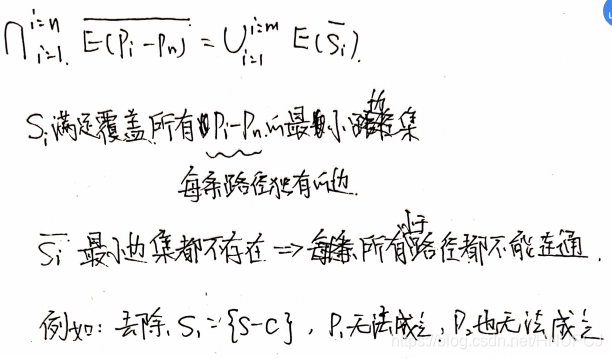 ⋂_{i=1}^{i=n} \overline{E(P_i-P_n)} = ⋃_{i=1}^{i=m} E(\overline{S_i}).
S_i 满足覆盖所有 P_i-P_n 的最小边集
每条路径独有的边.
\overline{S_i} 最小边集都不存在 => 所有路径都不能连通.
例如: 去除 S_1={S-C}, P_1无法成立, P_2也无法成立